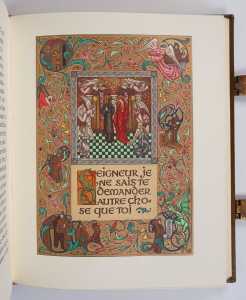 SEIGNEUR, JE
NE SAIS TE
DEMANDER
AUTRE CHO
SE QUE TOI